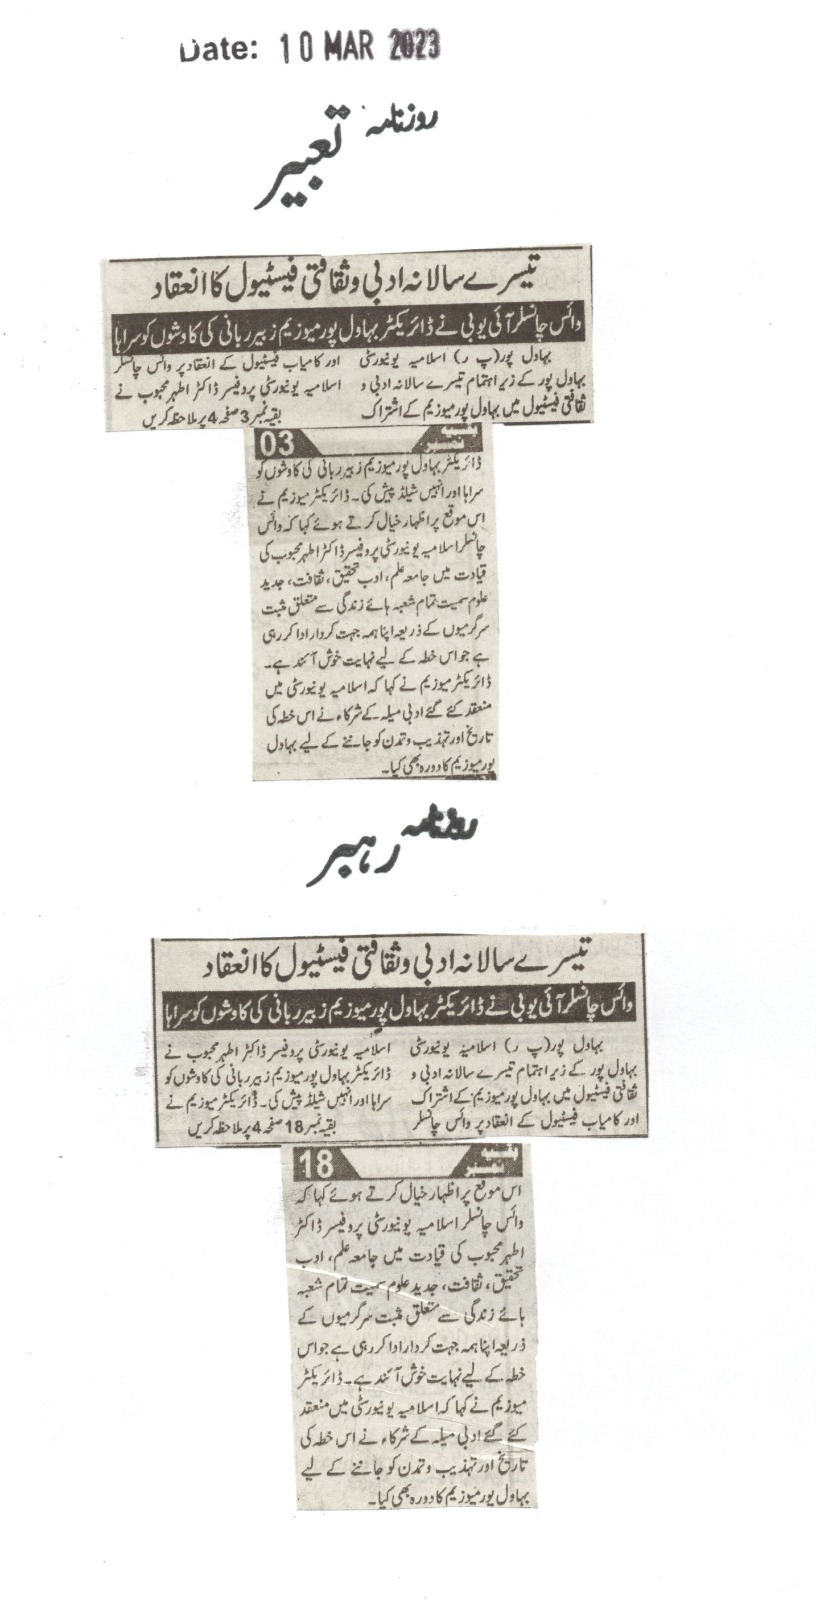 Date: 10 MAR 2023
روزنامہ تعبیر
تیسرے سالانہ ادبی و ثقافتی فیسٹیول کا انعقاد
وائس چانسلر آئی یو بی نے ڈائریکٹر بہاول پور میوزیم زبیر ربانی کی کاوشوں کو سراہا
بہاول پور(پ ر) اسلامیہ یونیورسٹی
بہاول پور کے زیر اہتمام تیسرے سالانہ ادبی و
ثقافتی فیسٹیول میں بہاول پور میوزیم کے اشتراک
اور کامیاب فیسٹیول کے انعقاد پر وائس چانسلر
اسلامیہ یونیورسٹی پروفیسر ڈاکٹر اطہر محبوب نے
بقیہ نمبر 3 صفحہ 4 پر ملاحظہ کریں
بقیہ نمبر 03
ڈائریکٹر بہاول پور میوزیم زبیر ربانی کی کاوشوں کو
سراہا اور انہیں شیلڈ پیش کی۔ ڈائریکٹر میوزیم نے
اس موقع پر اظہار خیال کرتے ہوئے کہا کہ وائس
چانسلر اسلامیہ یونیورسٹی پروفیسر ڈاکٹر اطہر محبوب کی
قیادت میں جامعہ علم، ادب تحقیق، ثقافت، جدید
علوم سمیت تمام شعبہ ہائے زندگی سے متعلق مثبت
سرگرمیوں کے ذریعہ اپنا ہمہ جہت کردار ادا کر رہی
ہے جو اس خطہ کے لیے نہایت خوش آئند ہے۔
ڈائریکٹر میوزیم نے کہا کہ اسلامیہ یونیورسٹی میں
منعقد کئے گئے ادبی میلہ کے شرکاء نے اس خطہ کی
تاریخ اور تہذیب و تمدن کو جاننے کے لیے بہاول
پور میوزیم کا دورہ بھی کیا۔
روزنامہ رہبر
تیسرے سالانہ ادبی و ثقافتی فیسٹیول کا انعقاد
وائس چانسلر آئی یو بی نے ڈائریکٹر بہاول پور میوزیم زبیر ربانی کی کاوشوں کو سراہا
بہاول پور(پ ر) اسلامیہ یونیورسٹی
بہاول پور کے زیر اہتمام تیسرے سالانہ ادبی و
ثقافتی فیسٹیول میں بہاول پور میوزیم کے اشتراک
اور کامیاب فیسٹیول کے انعقاد پر وائس چانسلر
اسلامیہ یونیورسٹی پروفیسر ڈاکٹر اطہر محبوب نے
ڈائریکٹر بہاول پور میوزیم زبیر ربانی کی کاوشوں کو
سراہا اور انہیں شیلڈ پیش کی۔ ڈائریکٹر میوزیم نے
بقیہ نمبر 18 صفحہ 4 پر ملاحظہ کریں
بقیہ نمبر 18
اس موقع پر اظہار خیال کرتے ہوئے کہا کہ
وائس چانسلر اسلامیہ یونیورسٹی پروفیسر ڈاکٹر
اطہر محبوب کی قیادت میں جامعہ علم، ادب
تحقیق، ثقافت، جدید علوم سمیت تمام شعبہ
ہائے زندگی سے متعلق مثبت سرگرمیوں کے
ذریعہ اپنا ہمہ جہت کردار ادا کر رہی ہے جو اس
خطہ کے لیے نہایت خوش آئند ہے۔ ڈائریکٹر
میوزیم نے کہا کہ اسلامیہ یونیورسٹی میں منعقد
کئے گئے ادبی میلہ کے شرکاء نے اس خطہ کی
تاریخ اور تہذیب و تمدن کو جاننے کے لیے
بہاول پور میوزیم کا دورہ بھی کیا۔